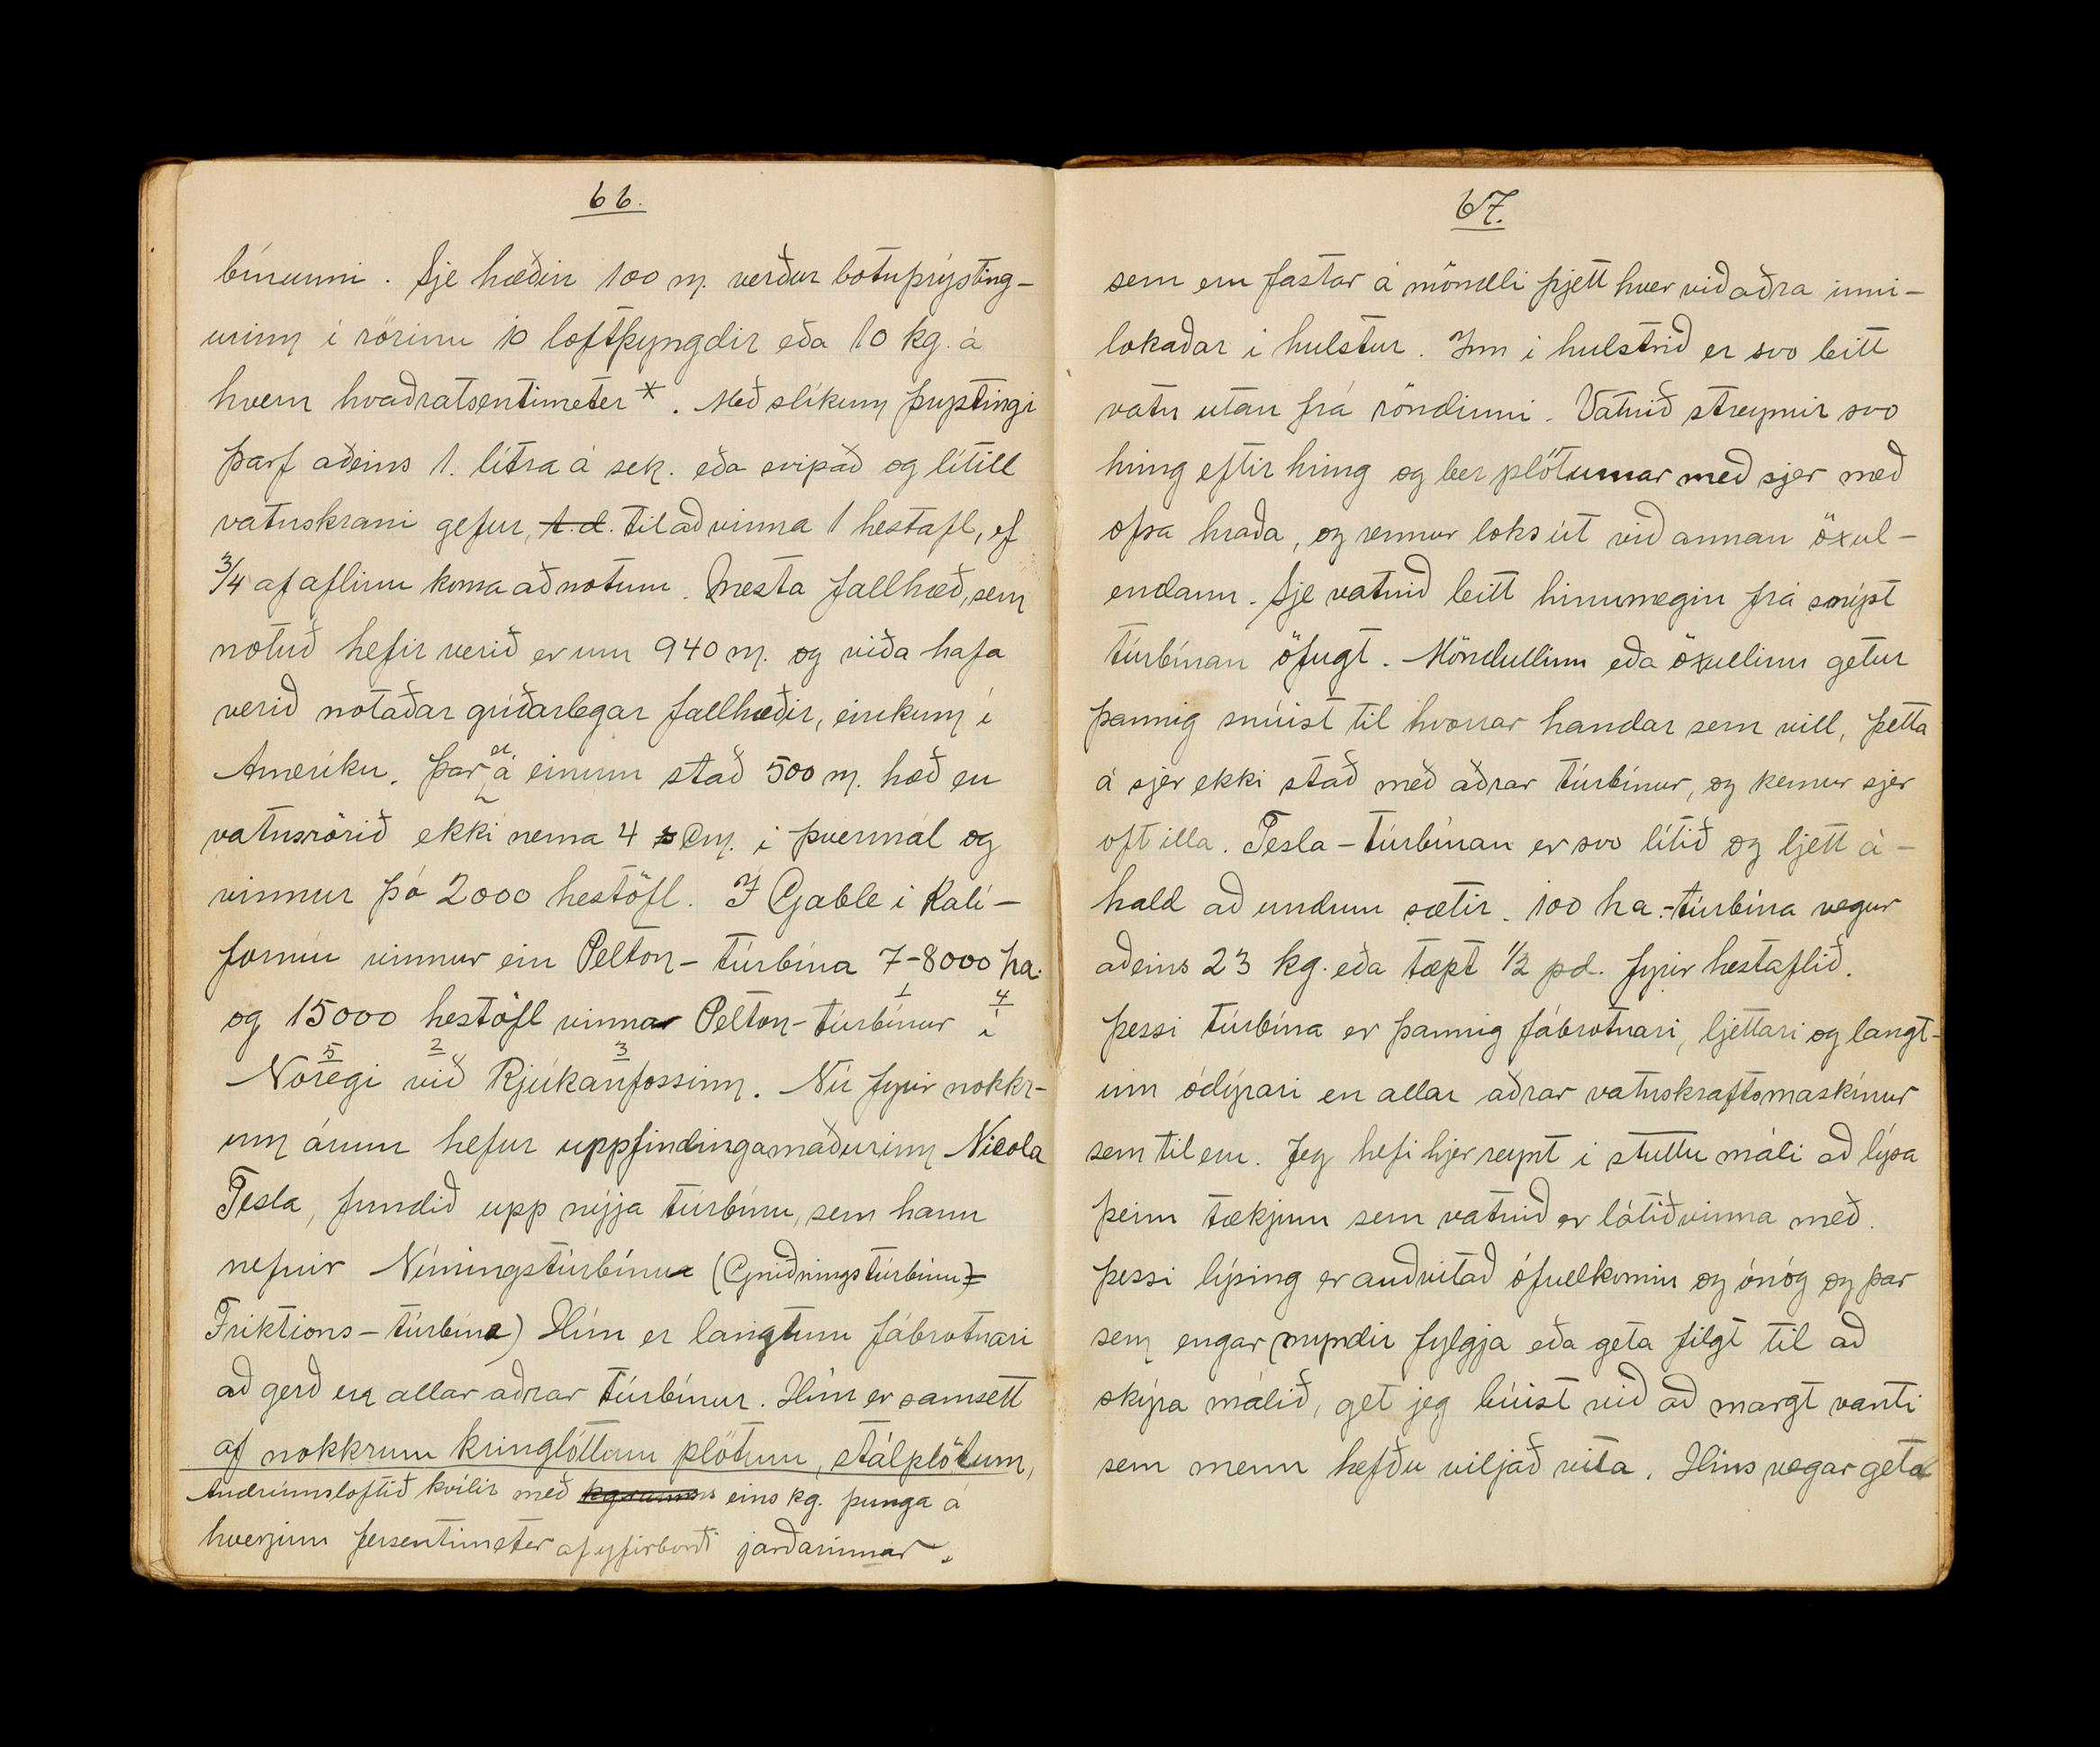 66.
bínunni. Sje hæðin 100 m. verður botnþrýsting-
urinn í rörinu 10 loftþyngdir eða 10 kg. á
hvern kvaðratsentimeter *. Með slíkum þrystingi
þarf aðeins 1. lítra á sek. eða svipað og lítill
vatnskrani gefur, t.d. til að vinna 1 hestafl, ef
3/4 af aflinu koma að notum. Mesta fallhæð, sem
notuð hefir verið er um 940 m. og víða hafa
verið notaðar gríðarlegar fallhæðir, einkum í
Ameríku. Þar er á einum stað 500 m. hæð en
vatnsrörið ekki nema 4 cm. í þvermál og
vinnur þó 2000 hestöfl. Í Gable í Kali-
forníu vinnur ein Pelton-túrbína 7-8000 ha.
og 15000 hestöfl vinna Pelton-túrbínur 1 í 4
Noregi 5 við 2 Rjúkanfossinn 3. Nú fyrir nokkr-
um árum hefur uppfindingamaðurinn Nicola
Tesla, fundið upp nýja túrbínu, sem hann
nefnir Núningstúrbínu (Gniðningstúrbínu =
Friktions-túrbína) Hún er langtum fábrotnari
að gerð en allar aðrar túrbínur. Hún er samsett
af nokkrum kringlóttum plötum, stálplötum,
Andrúmsloftið hvílir með eins kg. þunga á
hverjum fersentimeter af yfirborði jarðarinnar.
67.
sem eru fastar á möndli þjett hver við aðra inni-
lokaðar í hulstur. Inn í hulstrið er svo leitt
vatn utan frá röndinni. Vatnið streymir svo
hring eftir hring og ber plöturnar með sjer með
ofsa hraða, og rennur loks út við annan öxul-
endann. Sje vatnið leitt hinumegin frá snýst
túrbínan öfugt. Möndullinn eða öxullinn getur
þannig snúist til hvorrar handar sem vill, þetta
á sjer ekki stað með aðrar túrbínur, og kemur sjer
oft illa. Tesla-túrbínan er svo lítið og ljett á-
hald að undrum sætir. 100 ha.-túrbína vegur
aðeins 23 kg. eða tæpt 1/2 pd. fyrir hestaflið.
Þessi túrbína er þannig fábrotnari, ljettari og langt-
um ódýrari en allar aðrar vatnskraftsmaskínur
sem til eru. Jeg hefi hjer reynt í stuttu máli að lýsa
þeim tækjum sem vatnið er látið vinna með.
Þessi lýsing er auðvitað ófullkomin og ónóg og þar
sem engar myndir fylgja eða geta filgt til að
skýra málið, get jeg búist við að margt vanti
sem menn hefðu viljað vita. Hins vegar geta